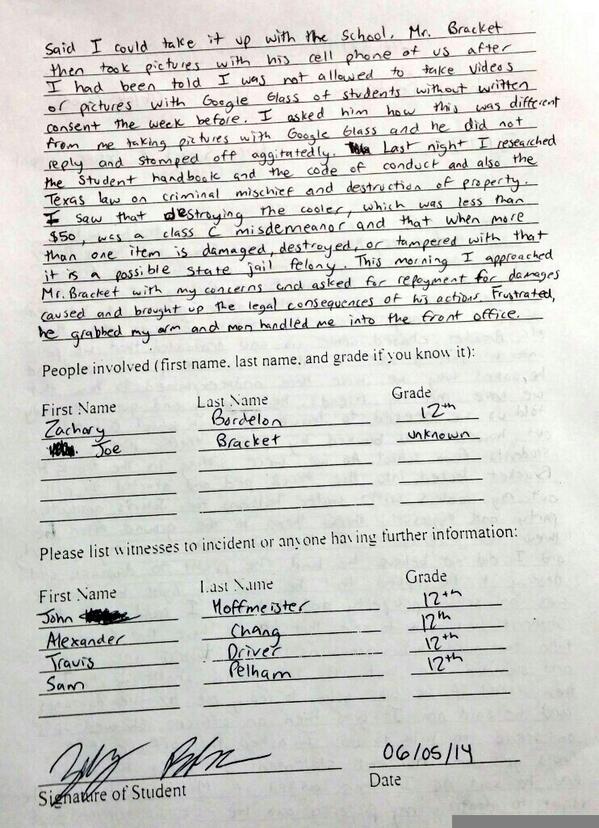 Said I could take it up with the school. Mr. Bracket
then took pictures with his cell phone of us after
I had been told I was not allowed to take videos
or pictures with Google Glass of students without written
consent the week before. I asked him how this was different
from me taking pictures with Google Glass and he did not
reply and stomped off aggitatedly. Last night I researched
the Student handbook and the code of conduct and also the
Texas law on criminal mischief and destruction of property.
I saw that destroying the cooler, which was less than
$50, was a class C misdemeanor and that when more
than one item is damaged, destroyed, or tampered with that
it is a possible state jail felony. This morning I approached
Mr. Bracket with my concerns and asked for repayment for damages
caused and brought up the legal consequences of his actions. Frustrated,
he grabbed my arm and man handled me into the front office.
People involved (first name, last name, and grade if you know it):
First Name Last Name Grade
Zachary Bordelon 12th
Joe Bracket unknown
Please list witnesses to incident or anyone having further information:
First Name Last Name Grade
John Hoffmeister 12th
Alexander Chang 12th
Travis Driver 12th
Sam Pelham 12th
06/05/14
Signature of Student Date